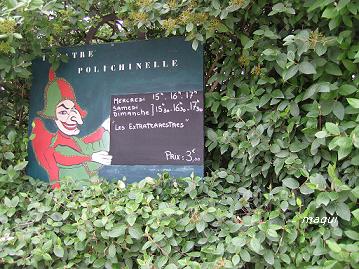 THÉATRE
POLICHINELLE
MERCREDI 15h. 16h. 17h
SAMEDI
DIMANCHE } 15h30. 16h30. 17h30
"LES EXTRATERRESTRES"
PRIX: 3€,00
maqui